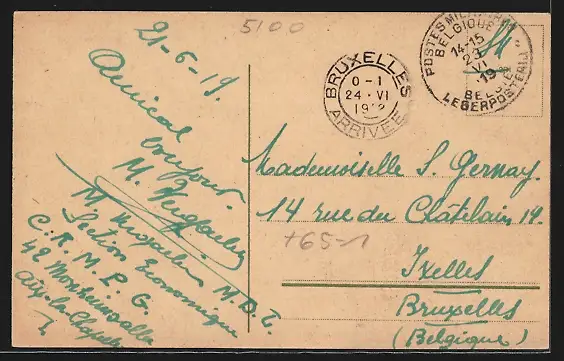 5100
21-6-19.
Amical
bonjour.
M.
M D T.
Section Economique
C. R. M. P. G.
42 Monheimsallee
Aix-la-Chapelle
BRUXELLES
0-1
24 · VI
ARRIVEE
POSTES MILITAIRES
BELGIQUE
14-15
23
VI
19
LEGERPOSTERIJ
Mademoiselle S. Gernay
14 rue du Châtelain 14.
+65-1
Ixelles
Bruxelles
(Belgique)